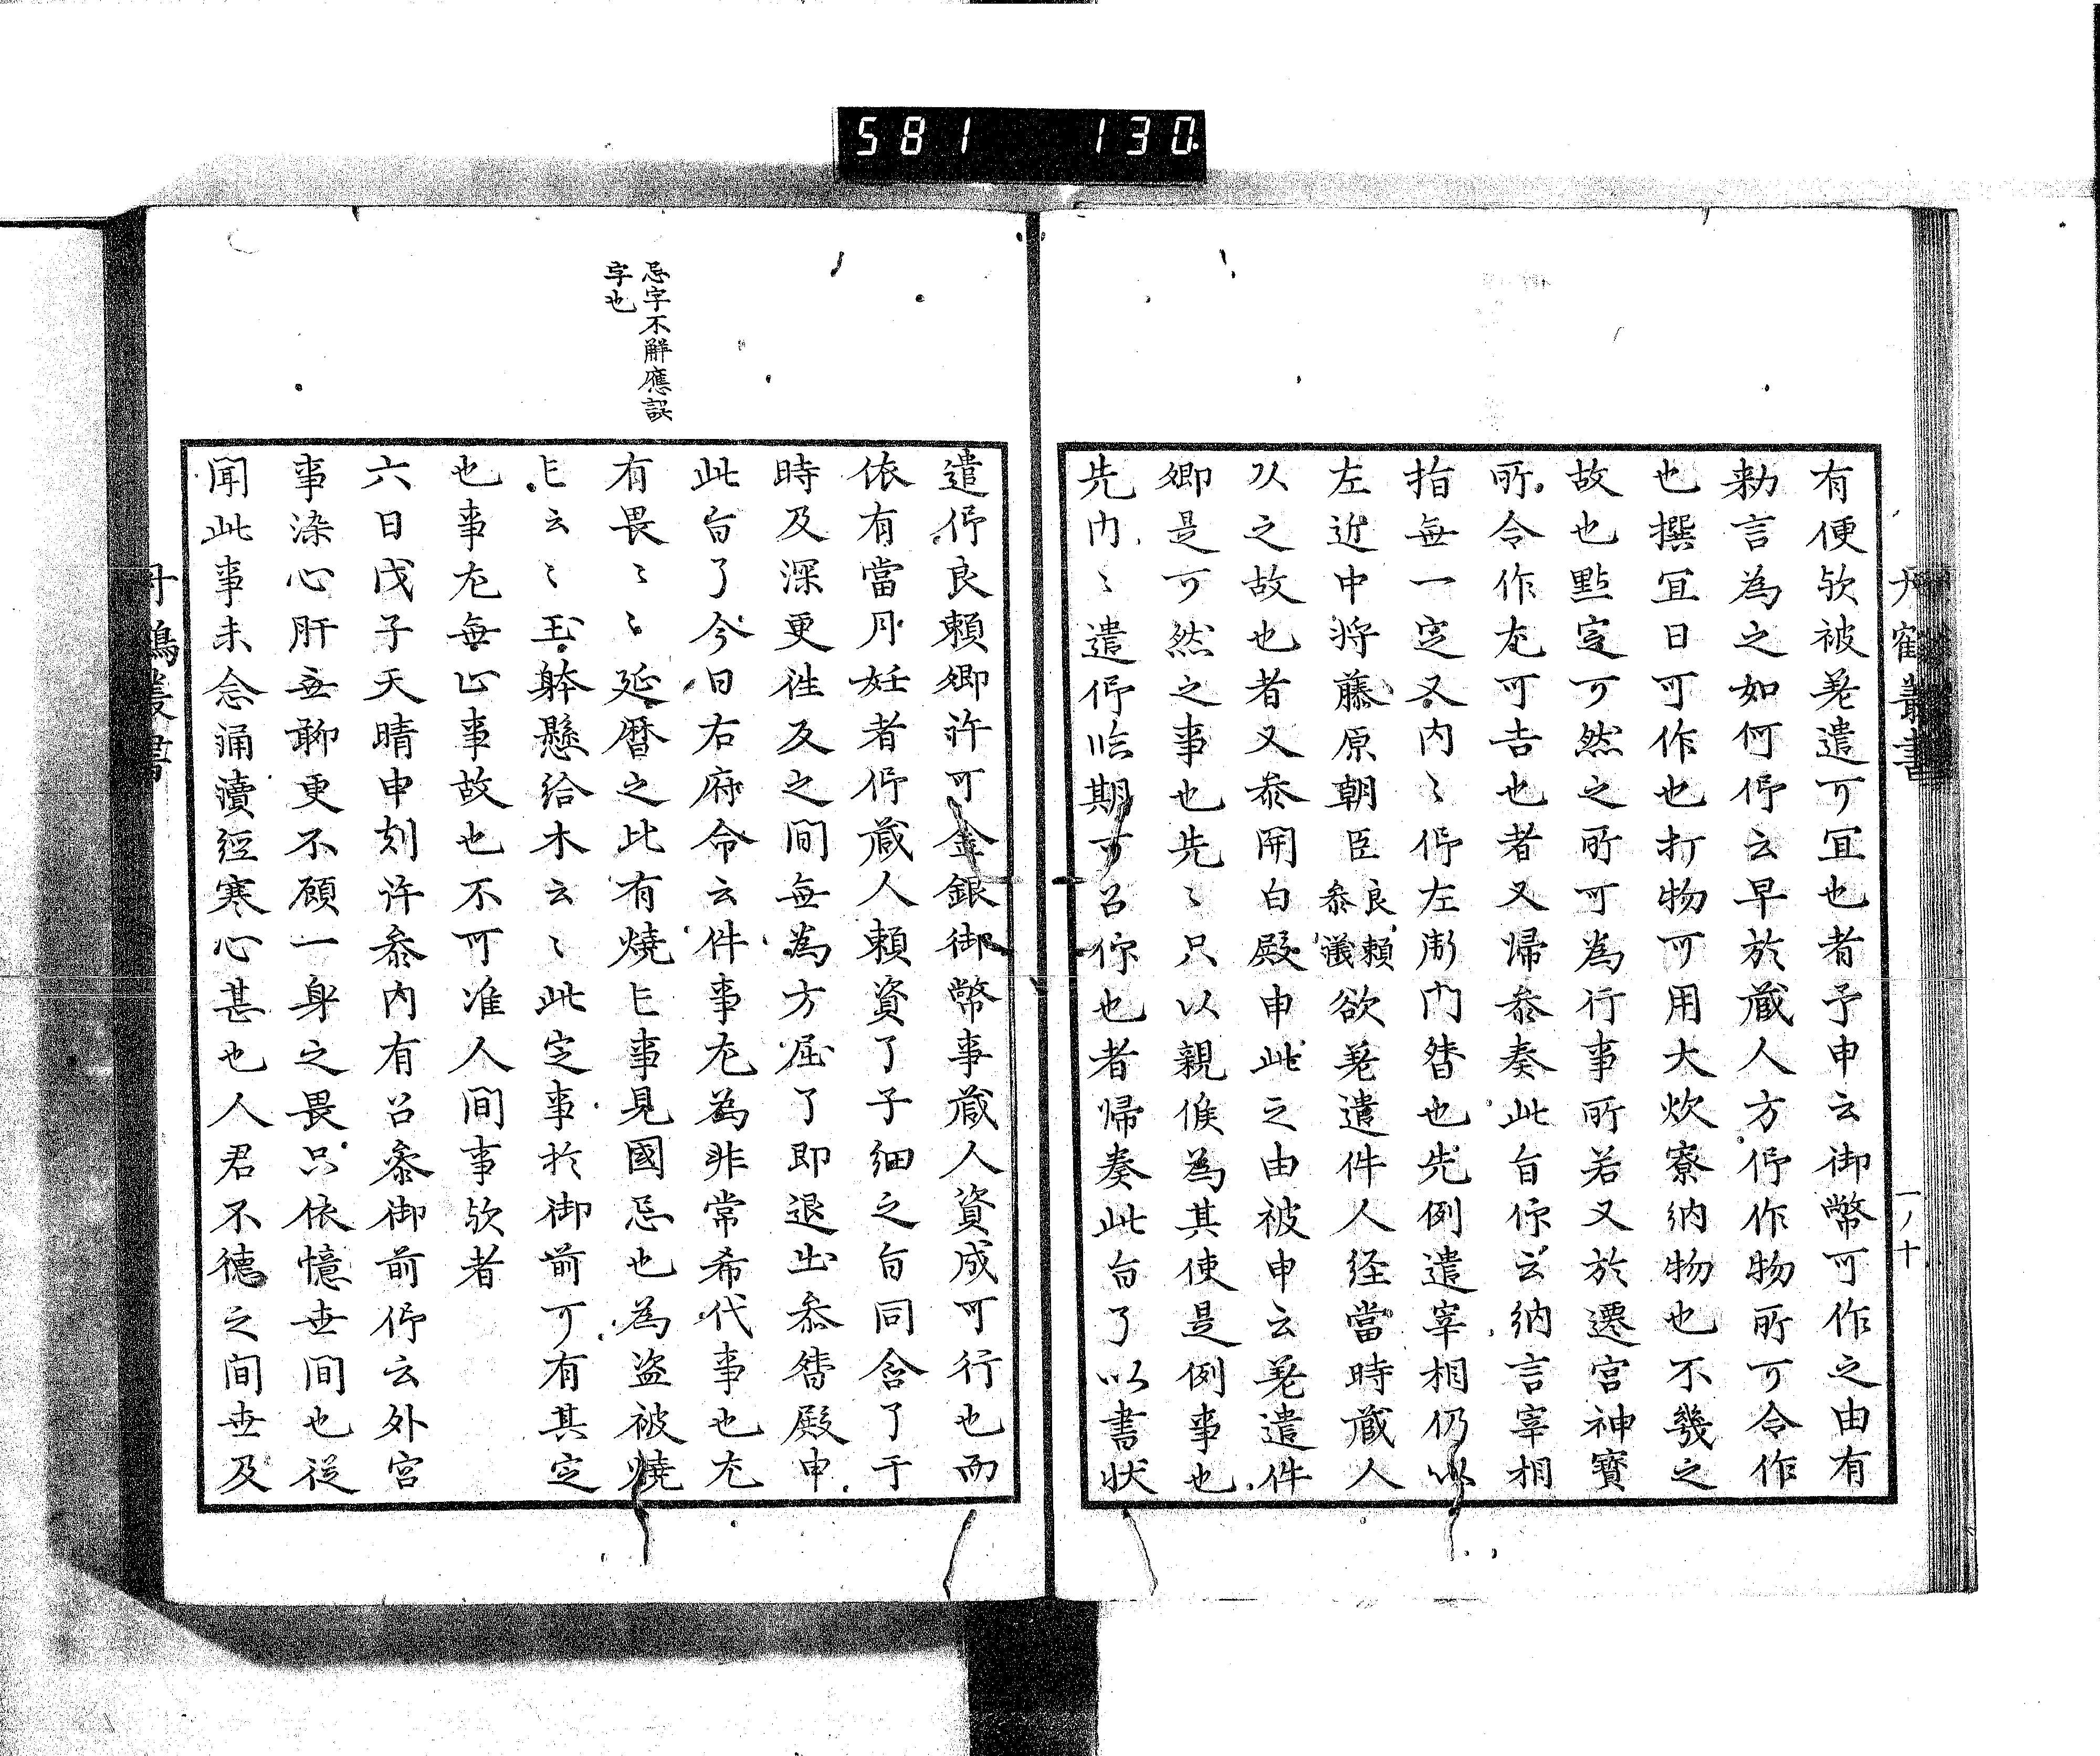 581 130
丹鶴叢書
一ノ十
有便欤被差遣可宜也者予申云御幣可作之由有
勅言為之如何仰云早於蔵人方仰作物所可令作
也撰宜日可作也打物可用大炊寮納物也不幾之
故也點定可然之所可為行事所若又於遷宮神寳
所令作尤可吉也者又帰参奏此旨仰云納言宰相
指無一定又内〻仰左衛門督也先例遣宰相仍以
左近中将藤原朝臣良頼参議欲差遣件人経當時蔵人
以之故也者又参関白殿申此之由被申云差遣件
卿是可然之事也先〻只以親候為其使是例事也
先内〻遣仰臨期可召仰也者帰奏此旨了以書状
忌字不解應誤
字也
遣仰良頼卿許可金銀御幣事蔵人資成可行也而
依有當月妊者仰蔵人頼資了子細之旨同含了于
時及深更往反之間無為方屈了即退出参督殿申
此旨了今日右府命云件事尤為非常希代事也尤
有畏〻〻延暦之比有焼亡事見國忌也為盗被焼
亡云〻玉躰懸給木云〻此定事於御前可有其定
也事尤無止事故也不可准人間事欤者
六日戊子天晴申刻许参内有召参御前仰云外宮
事染心肝無聊更不顧一身之畏只依憶世間也従
聞此事未念涌瀆經寒心甚也人君不德之间世及
丹鶴叢書